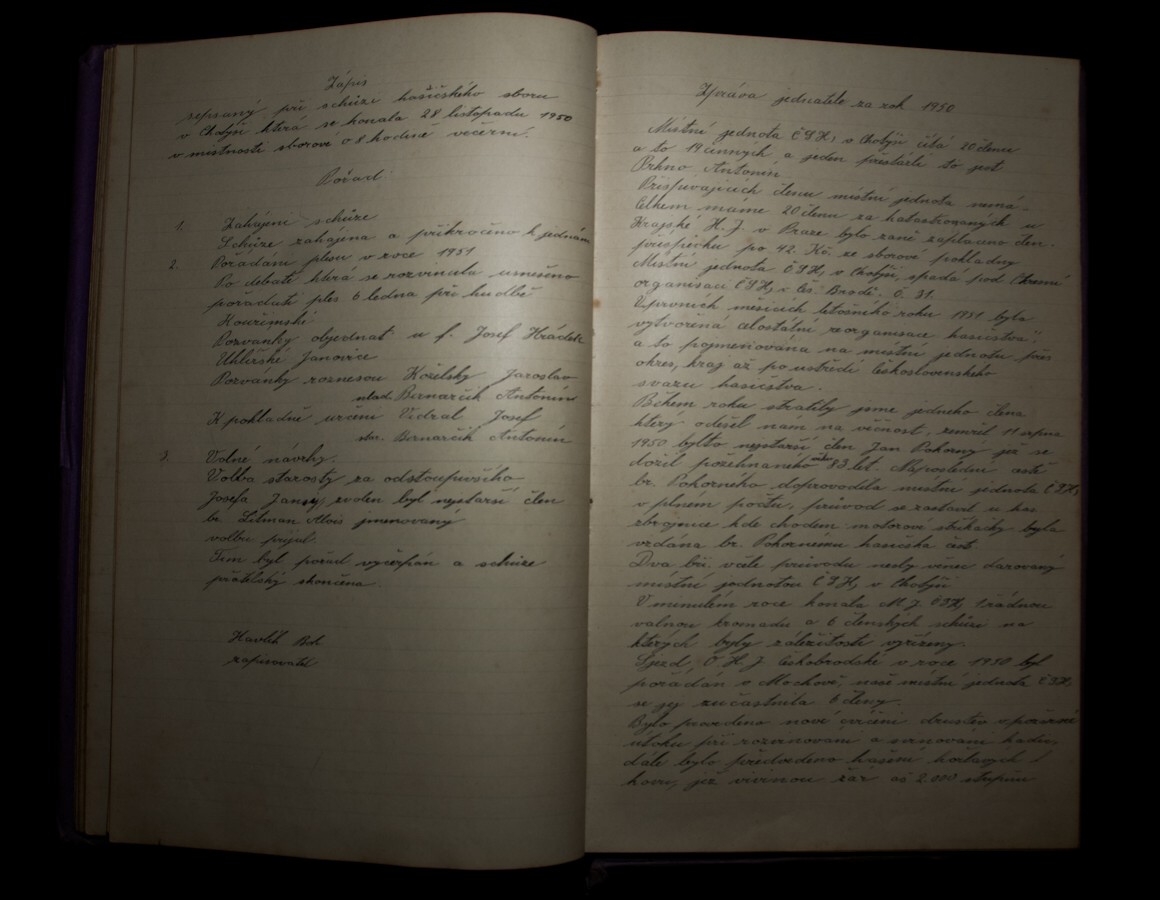 Zápis
sepsaný při schůze hasičského sboru
v Chotýši která se konala 28 listopadu 1950
v místnosti sborové o 8 hodině večerní.
Pořad
1. Zahájení schůze
Schůze zahájena a přikročeno k jednání
2. Pořádání plesu v roce 1951
Po debatě která se rozvinula usnešeno
pořádati ples 6 ledna při hudbě
Kouřimski
Pozvánky objednat u f. Josef Hrádek
Uhlířské Janovice
Pozvánky roznesou Kozelský Jaroslav
mlad. Bernarčík Antonín
K pokladně určeni Vidral Josef
star. Bernarčík Antonín
3. Volné návrhy.
Volba starosty za odstoupivšího
Josefa zvolen byl nejstarší člen
br. Litman Alois jmenovaný
volbu přijal.
Tím byl pořad vyčerpán a schůze
přátelsky skončena.
Havlík Boh.
zapisovatel
Zpráva jednatele za rok 1950
Místní jednota ČSH, v Chotýši čítá 20 členu
a to 19 činných a jeden přestárlí to jest
Prhno Antonín
Přispívajících členu místní jednota nemá.
Celkem máme 20 členu za katastrovaných u
Krajské H. J. v Praze bylo zaně zaplaceno člen.
příspěvku po 42. Kč. ze sborové pokladny
Místní jednota ČSH, v Chotýši, spadá pod Okresní
organisaci ČSH, v Čes. Brodě. č. 31.
V prvních měsících letošního roku 1951 byla
vytvořena celostátní reorganisace hasičstva,
a to pojmenována na místní jednotu přes
okres, kraj až po ustředí Československého
svazu hasičstva.
Během roku stratily jsme jednoho člena
který odešel nám na věčnost, zemřel 11 srpna
1950 bylto nejstarší člen Jan Pokorny jež se
dožil požehnaného věku 83 let. Naposledni cestě
br. Pokorného doprovodila místní jednota ČSH,
v plném počtu, průvod se zastavil u has.
zbrojnice kde chodem motorové stříkačky byla
vzdána br. Pokornému hasičska čest.
Dva bři. včele průvodu nesly venec darovaný
místní jednotou ČSH, v Chotýši
V minulém roce konala M. J. ČSH, 1 řádnou
valnou hromadu a 6 členských schůzí na
kterých byly záležitosti vyřízeny.
Sjezd O. H. J. Českobrodské v roce 1950 byl
pořádán v Mochově, naše místní jednota ČSH,
se jej zučastnila 6 členy.
Bylo provedeno nové cvičení družstev v požárním
útoku při rozvinování a svinování hadic,
dále bylo předvedeno hašení hořlavých
kovu, jež vivinou žár až 2.000 stupňu